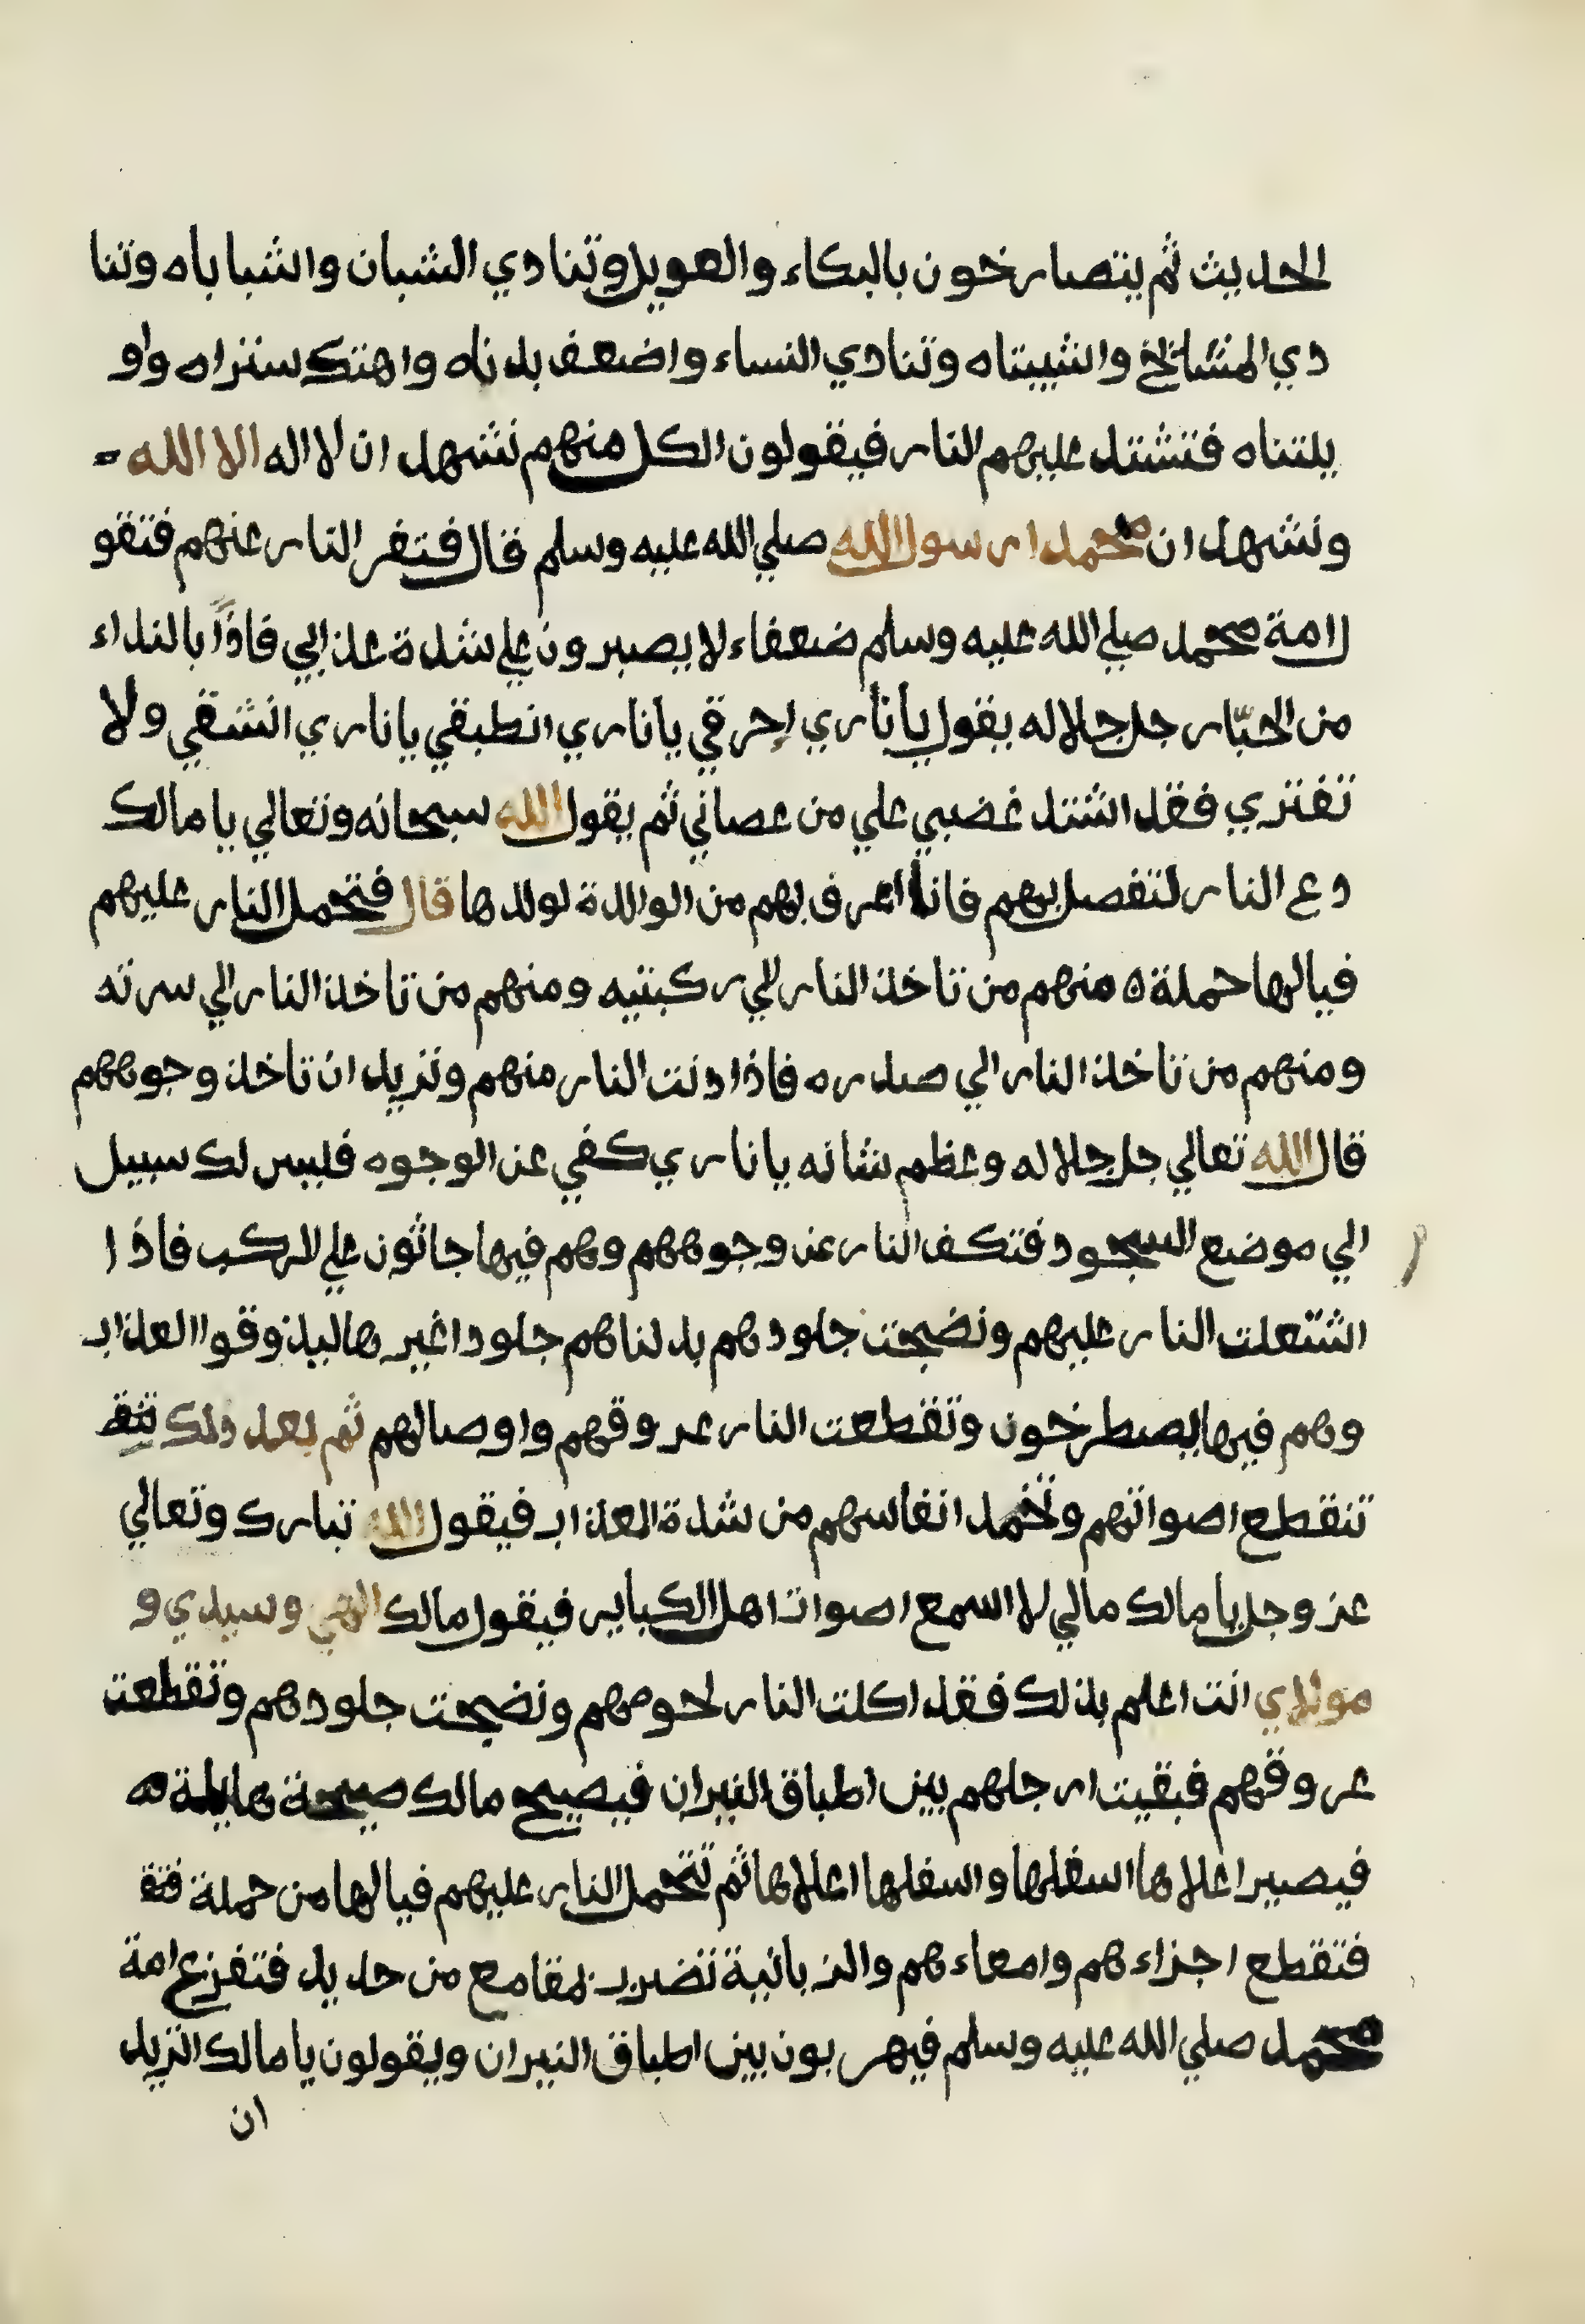 الحديث ثم يتصارخون بالبكاء والعويل وتنادي الشبان واشباباه وتنا
دي المشايخ واشيبتاه وتنادي النساء واضعف بدناه واهتك ستراه واو
يلتناه فتشتد عليهم النار فيقولون الكل منهم نشهد ان لا اله الا الله
ونشهد ان محمدا رسول الله صلي الله عليه وسلم قال فتفر النار عنهم فتقو
ل امة محمد صلي الله عليه وسلم ضعفاء لا يصبرون علي شدة عذابي فاذاً بالنداء
من الجبّار جل جلاله يقول يا ناري احرقي يا ناري انطبقي يا ناري اشقي ولا
تفتري فقد اشتد غضبي علي من عصاني ثم يقول الله سبحانه وتعالي يا مالك
دع النار لتفصل بهم فانا اعرف بهم من الوالدة لولدها قال فتحمل النار عليهم
فيالها حملة ه منهم من تاخذ النار الي ركبتيه ومنهم من تاخذ النار الي سرته
ومنهم من تاخذ النار الي صدره فاذا دنت النار منهم وتريد ان تاخذ وجوههم
قال الله تعالي جل جلاله وعظم شانه يا ناري كفي عن الوجوه فليس لك سبيل
الي موضع السجود فتكف النار عن وجوههم وهم فيها جاثون علي الركب فاذا
اشتعلت النار عليهم ونضجت جلودهم بدلناهم جلودا غيرها ليذوقوا العذاب
وهم فيها يصطرخون وتقطعت النار عروقهم واوصالهم ثم بعد ذلك تتق
تنقطع اصواتهم وتخمد انفاسهم من شدة العذاب فيقول الله تبارك وتعالي
عز وجل يا مالك مالي لا اسمع اصوات اهل الكباير فيقول مالك الهي وسيدي و
مولاي انت اعلم بذلك فقد اكلت النار لحومهم ونضجت جلودهم وتقطعت
عروقهم فبقيت ارجلهم بين اطباق النيران فيصيح مالك صيحة هايلة ه
فيصير اعلاها اسفلها واسفلها اعلاها ثم تتحمل النار عليهم فيالها من حملة فتق
فتقطع اجزاءهم وامعاءهم والزبانية تضرب بمقامع من حديد فتفزع امة
محمد صلي الله عليه وسلم فيهربون بين اطباق النيران ويقولون يا مالك اتريد
ان